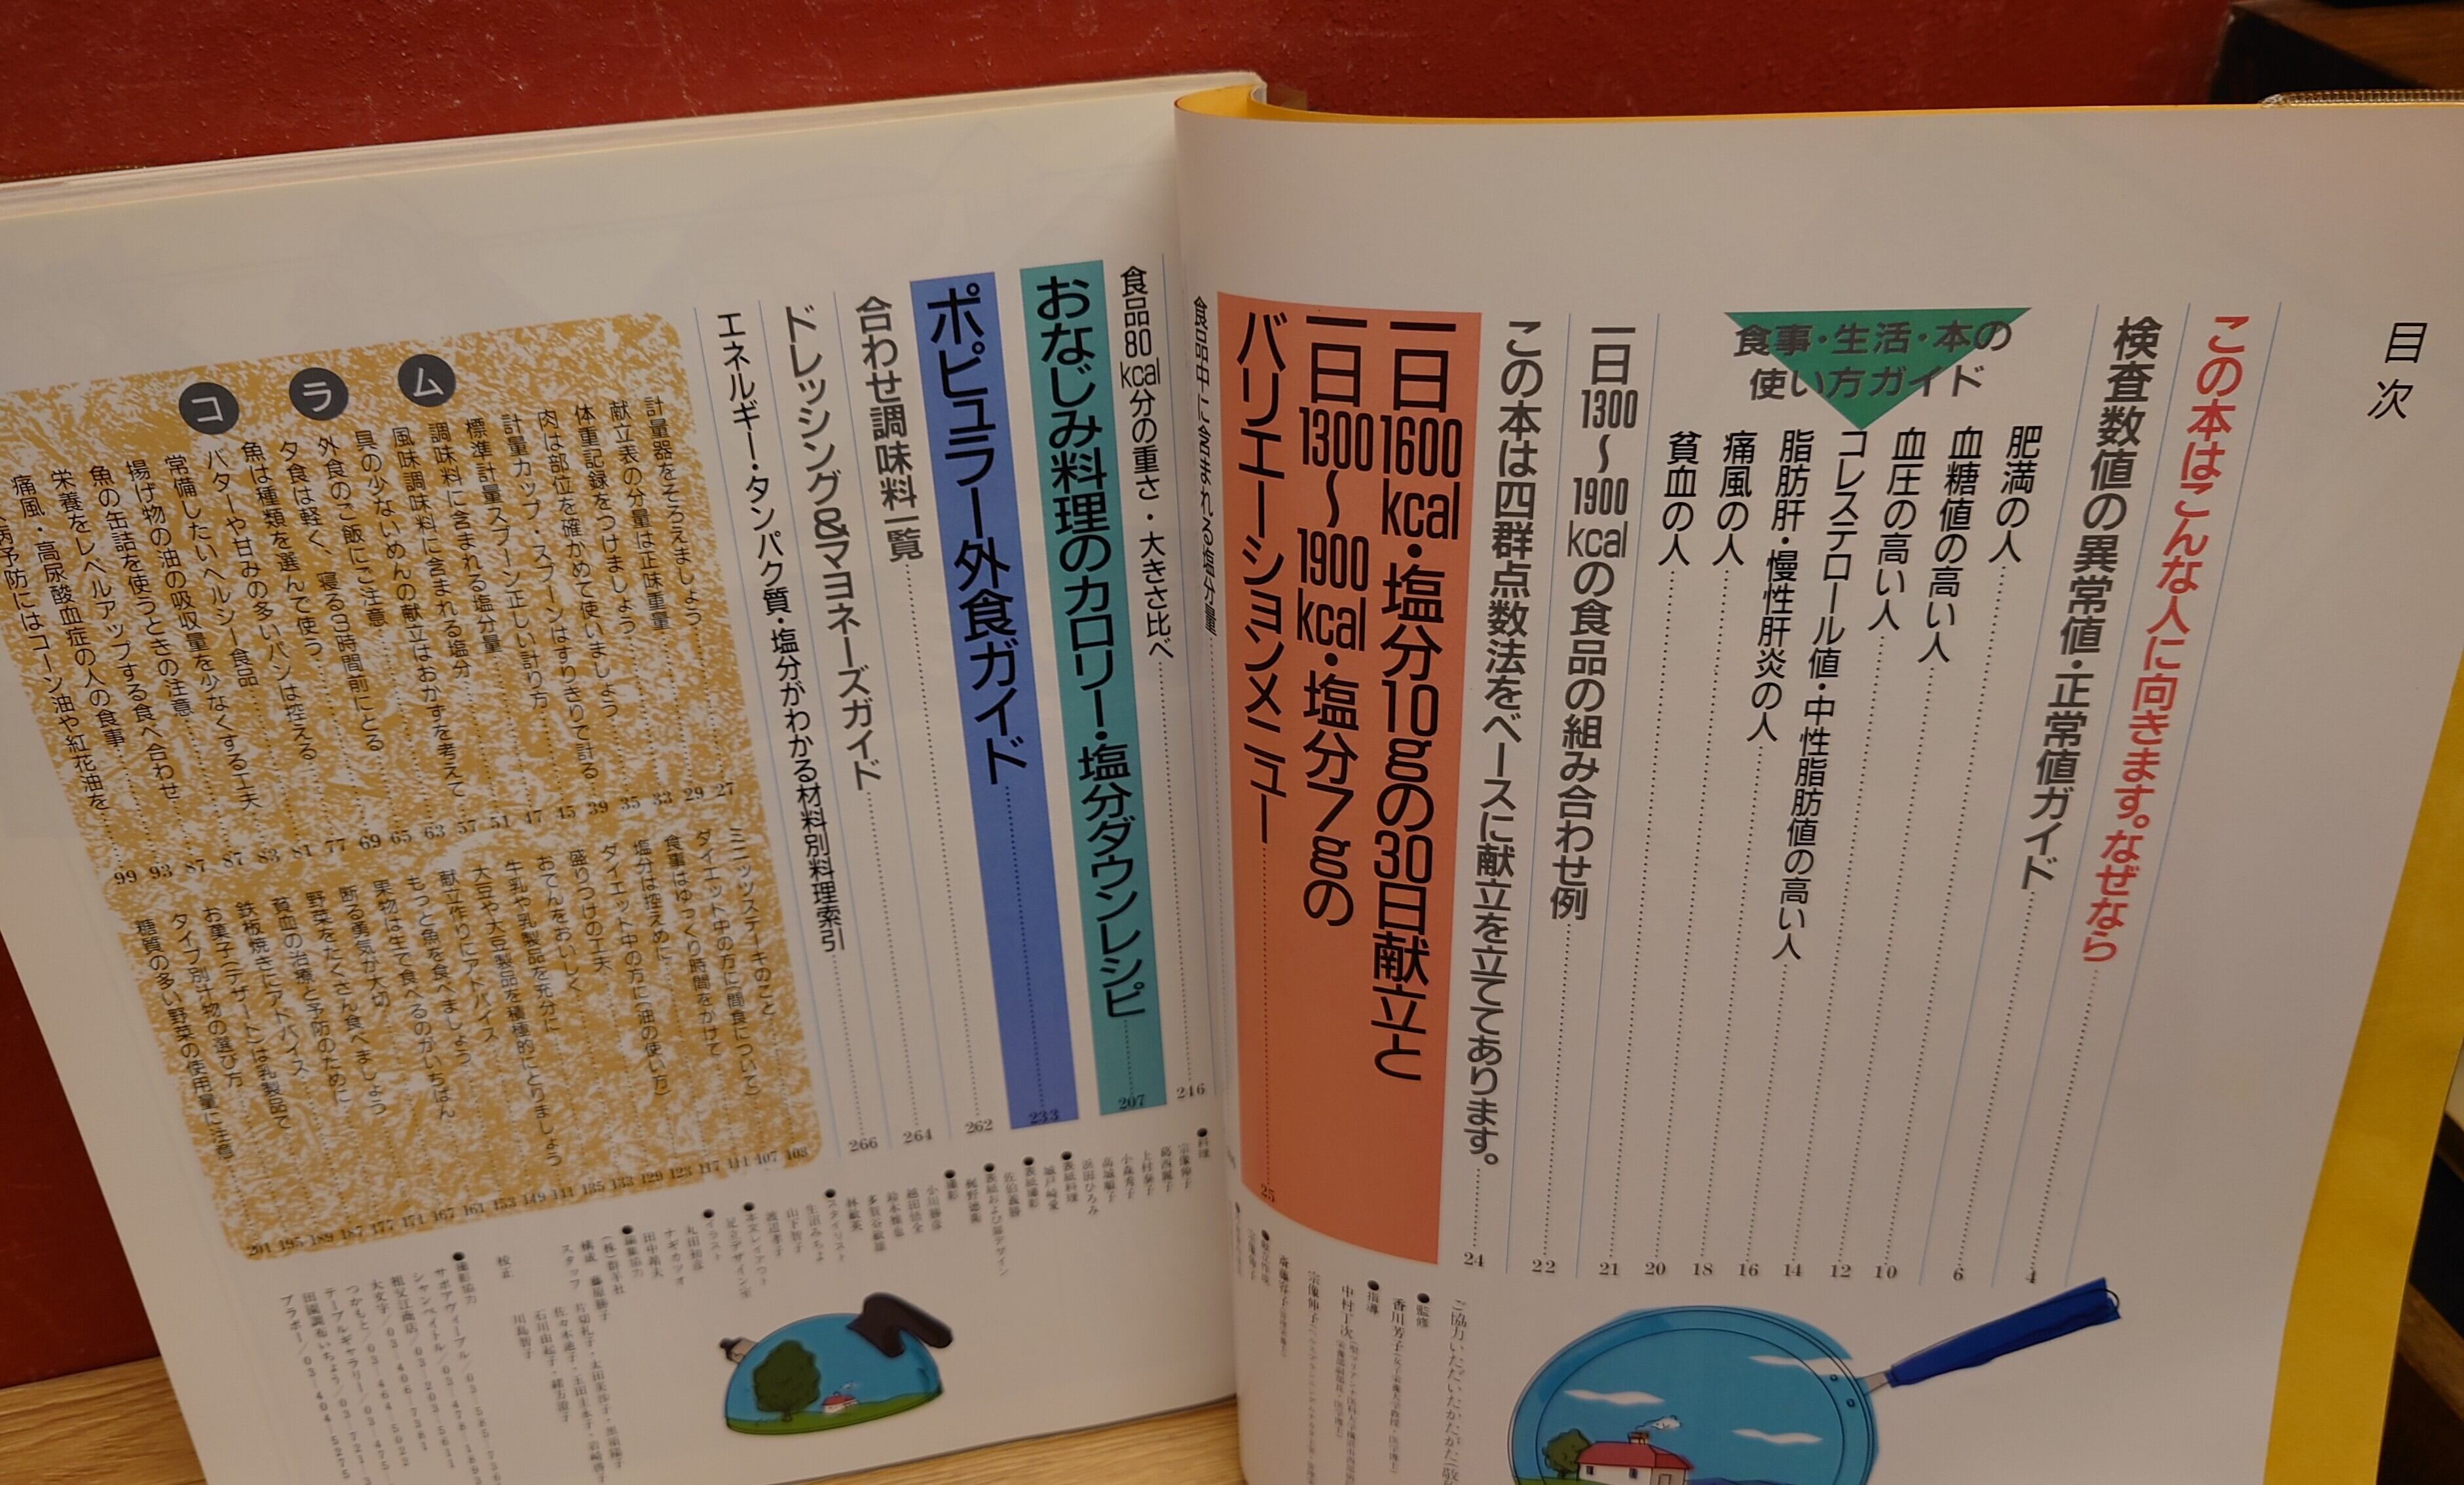 目次
この本はこんな人に向きます。なぜなら 4
検査数値の異常値・正常値ガイド 6
食事・生活・本の
使い方ガイド
肥満の人 10
血糖値の高い人 12
血圧の高い人 14
コレステロール値・中性脂肪値の高い人 16
脂肪肝・慢性肝炎の人 18
痛風の人 20
貧血の人 21
一日1300〜1900kcalの食品の組み合わせ例 22
この本は四群点数法をベースに献立を立ててあります。 24
一日1600kcal・塩分10gの30日献立と
一日1300〜1900kcal・塩分7gの
バリエーションメニュー 25
食品中に含まれる塩分量
食品80kcal分の重さ・大きさ比べ 246
おなじみ料理のカロリー・塩分ダウンレシピ 207
ポピュラー外食ガイド 233
合わせ調味料一覧 262
ドレッシング&マヨネーズガイド 264
エネルギー・タンパク質・塩分がわかる材料別料理索引 266
コラム
計量器をそろえましょう 27
献立表の分量は正味重量 29
体重記録をつけましょう 33
肉は部位を確かめて使いましょう 35
計量カップ・スプーンはすりきりで計る 39
標準計量スプーン正しい計り方 45
調味料に含まれる塩分量 47
風味調味料に含まれる塩分 51
具の少ないめんの献立はおかずを考えて 57
外食のご飯にご注意 63
夕食は軽く、寝る3時間前にとる 65
魚は種類を選んで使う 69
バターや甘みの多いパンは控える 77
常備したいヘルシー食品 81
揚げ物の油の吸収量を少なくする工夫 83
魚の缶詰を使うときの注意 87
栄養をレベルアップする食べ合わせ 87
痛風・高尿酸血症の人の食事 93
病予防にはコーン油や紅花油を 99
ミニッツステーキのこと 103
ダイエット中の方に(間食について) 107
食事はゆっくり時間をかけて 111
塩分は控えめに 117
ダイエット中の方に(油の使い方) 123
盛りつけの工夫 129
おでんをおいしく 133
牛乳や乳製品を充分に 135
大豆や大豆製品を積極的にとりましょう 141
献立作りにアドバイス 149
もっと魚を食べましょう 153
果物は生で食べるのがいちばん 161
断る勇気が大切 167
野菜をたくさん食べましょう 171
貧血の治療と予防のために 177
鉄板焼きにアドバイス 187
お菓子(デザート)は乳製品で 189
タイプ別汁物の選び方 195
糖質の多い野菜の使用量に注意 201
●監修
香川芳子
●指導
中村丁次
宗像伸子
●料理
宗像伸子
●表紙料理
城戸崎愛
●表紙撮影
佐伯義勝
●撮影
●スタイリスト
●イラスト
●編集協力
校正
●撮影協力